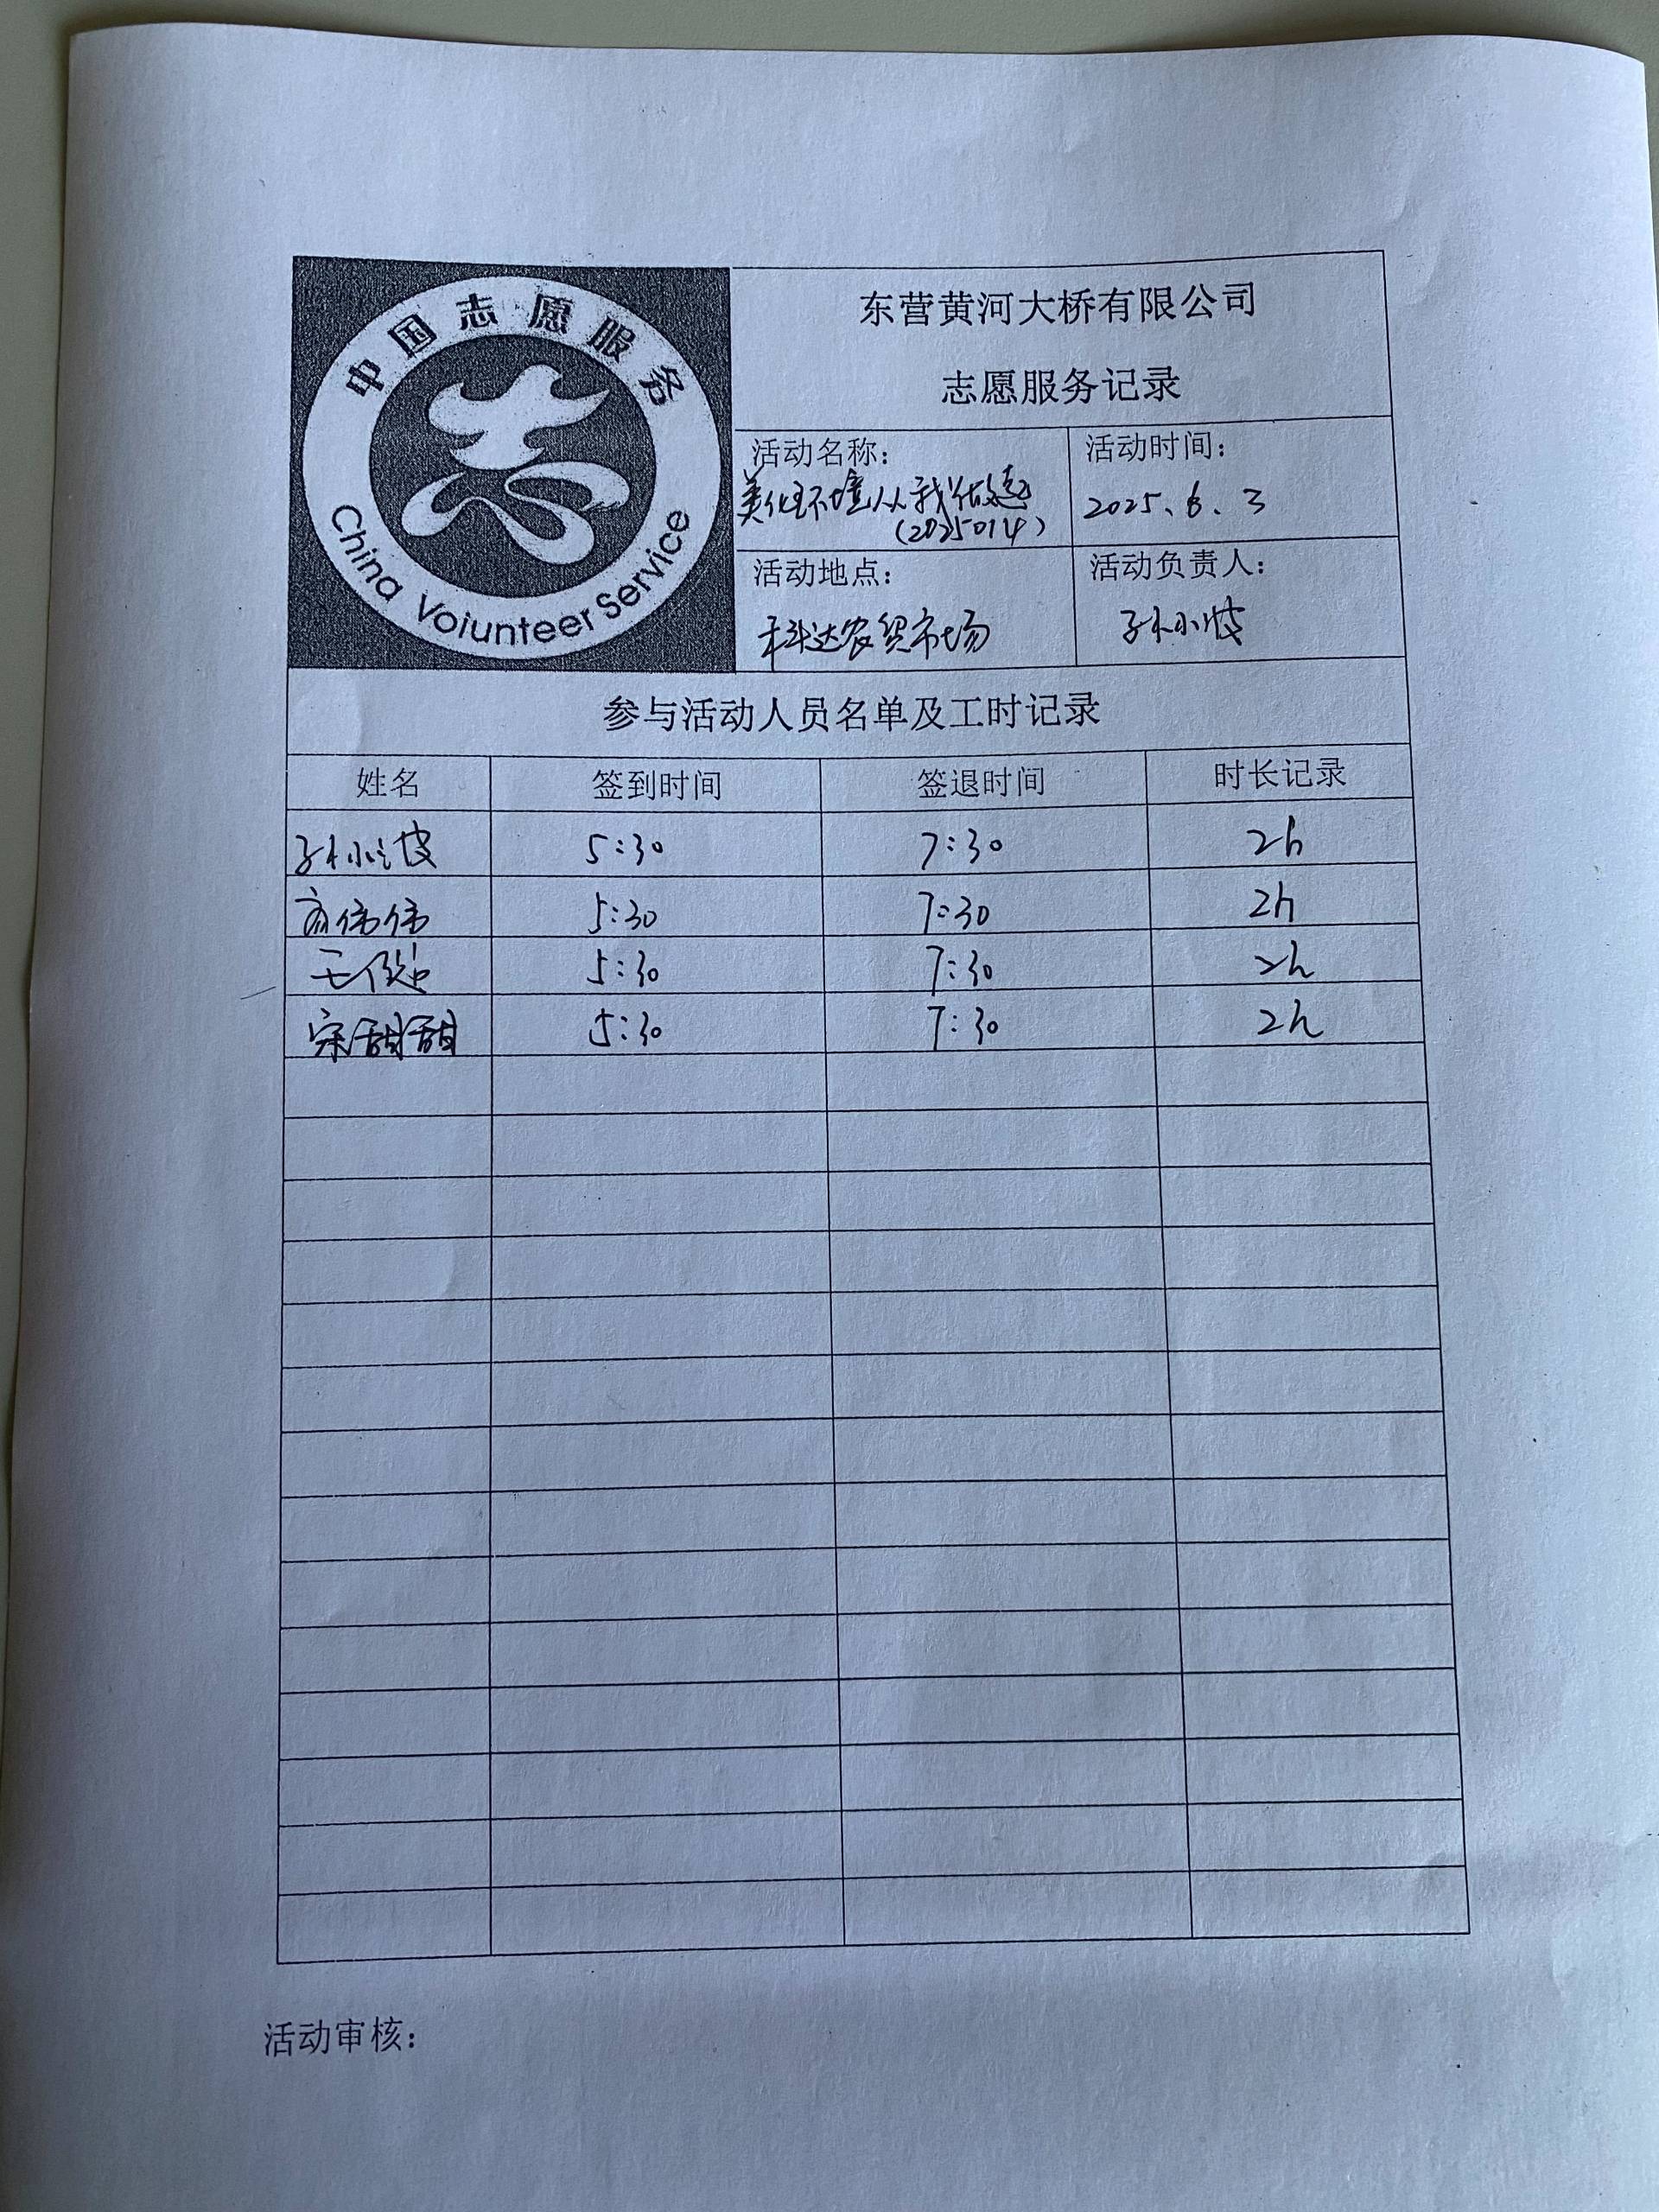 中国志愿服务
China Voiunteer Service
东营黄河大桥有限公司
志愿服务记录
活动名称：
美化环境从我做起
(2025014)
活动时间：
2025、6、3
活动地点：
科达农贸市场
活动负责人：
孙小波
参与活动人员名单及工时记录
姓名 签到时间 签退时间 时长记录
孙小波 5:30 7:30 2h
伟伟 5:30 7:30 2h
王 5:30 7:30 2h
宋甜甜 5:30 7:30 2h
活动审核：